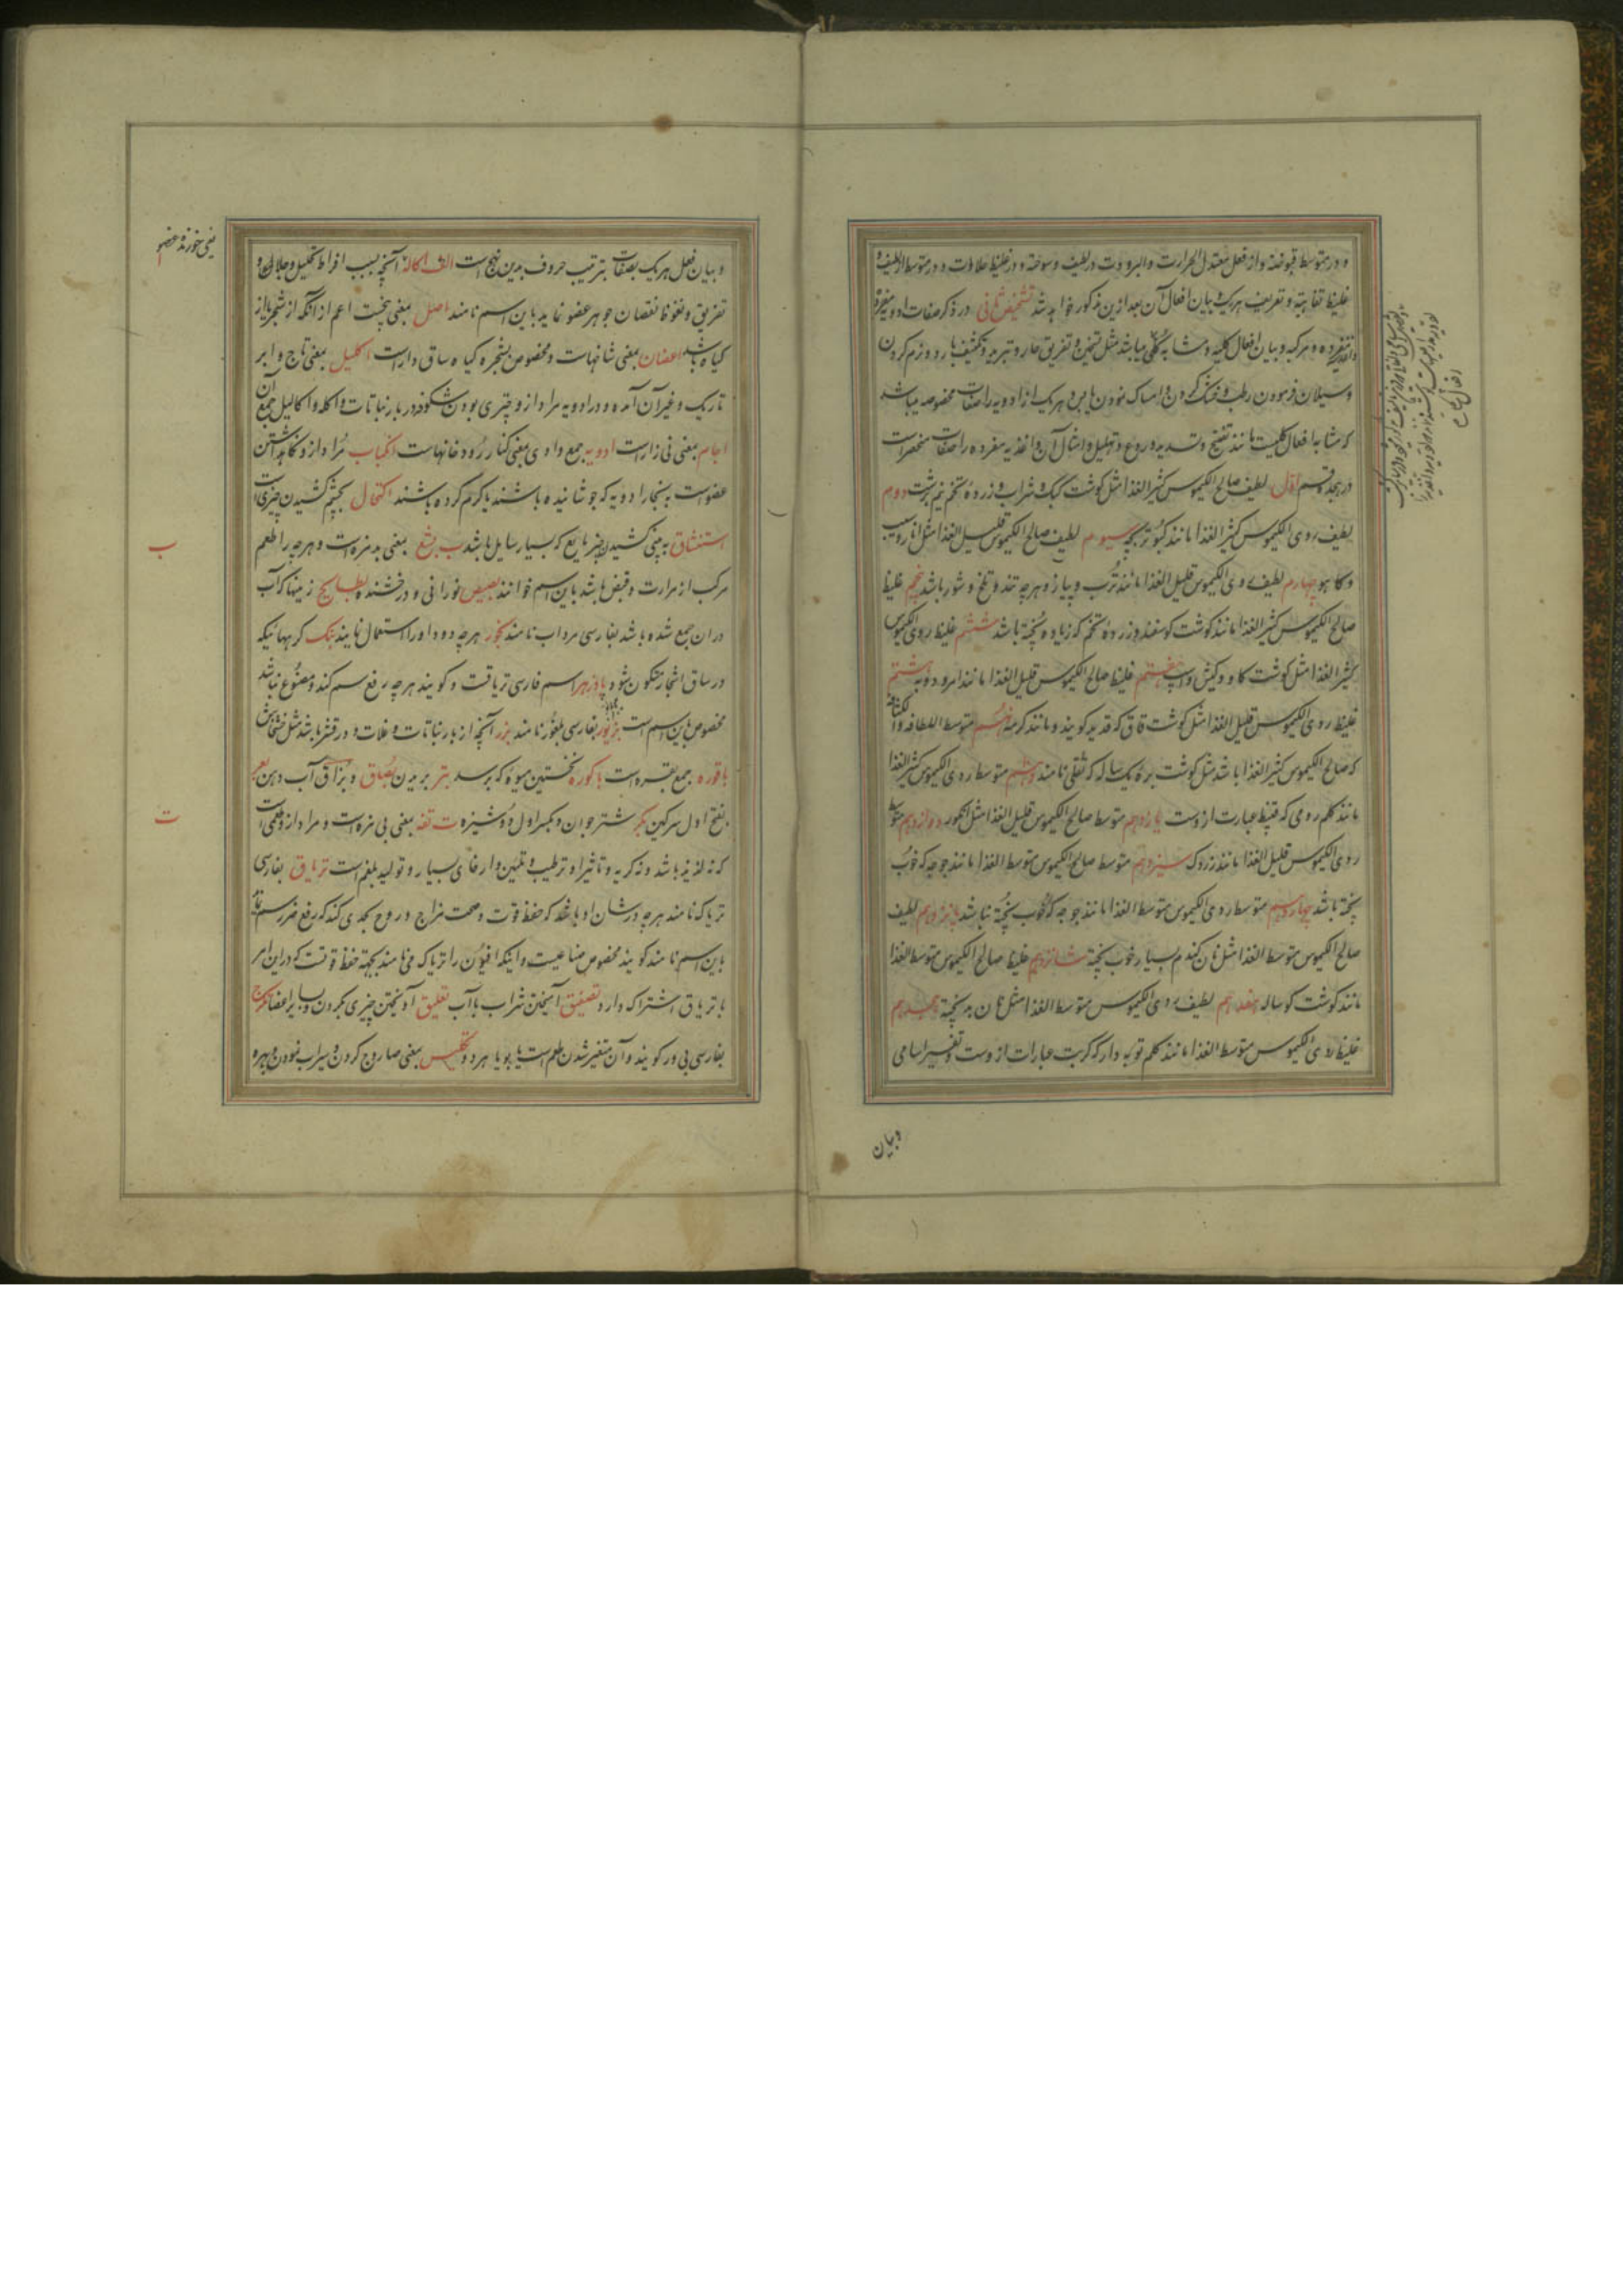 و در متوسط قبوضه و از فعل معتدل الحرارت والبرودت در لطیف دسومة و در غلیظ حلاوت و در متوسط اللطیف و
غلیظ تفاهیة و تعریف هر یک و بیان افعال آن بعد ازین مذکور خواهد شد تشخیص ثانی در ذکر صفات ادویه مفرده
و اغذیه مفرده و مرکبه و بیان افعال کلیه و مشابه کلی میباشد مثل تسخین و تفریق حار و تبرید و تکثیف بارد و نرم کردن
و سیلان فرمودن رطب و خشک کردن و امساک نمودن یابس و هر یک از ادویه را صفات مخصوصه میباشد
که مشابه افعال کلیست مانند تفتیح و تسدید و ردع و تحلیل و امثال آن و اغذیه مفرده را صفات منحصر است
در هیجده قسم اول لطیف صالح الکیموس کثیر الغذا مثل گوشت کبک و شراب و زرده تخم نیم برشت دوم
لطیف ردی الکیموس کثیر الغذا مانند کبوتر بچه سیوم لطیف صالح الکیموس قلیل الغذا مثل انار و سیب
و کاهو چهارم لطیف ردی الکیموس قلیل الغذا مانند ترب و پیاز و هر چه تند و تلخ و شور باشد پنجم غلیظ
صالح الکیموس کثیر الغذا مانند گوشت گوسفند و زرده تخم که زیاده پخته باشد ششم غلیظ ردی الکیموس
کثیر الغذا مثل گوشت گاو و گیش و اسپ هفتم غلیظ صالح الکیموس قلیل الغذا مانند امرود و به هشتم
غلیظ ردی الکیموس قلیل الغذا مثل گوشت قاق که قدید گویند و مانند کرمه نهم متوسط اللطافه والکثافه
که صالح الکیموس کثیر الغذا باشد مثل گوشت بره یک ساله که ثقلی نامند دهم متوسط ردی الکیموس کثیر الغذا
مانند کلم رومی که قنبیط عبارت ازوست یازدهم متوسط صالح الکیموس قلیل الغذا مثل انگور دوازدهم متوسط
ردی الکیموس قلیل الغذا مانند زردک سیزدهم متوسط صالح الکیموس متوسط الغذا مانند جوجه که خوب
پخته باشد چهاردهم متوسط ردی الکیموس متوسط الغذا مانند جوجه که خوب پخته نباشد پانزدهم لطیف
صالح الکیموس متوسط الغذا مثل نان گندم بسیار خوب پخته شانزدهم غلیظ صالح الکیموس متوسط الغذا
مانند گوشت گوساله هفدهم لطیف ردی الکیموس متوسط الغذا مثل نان بد پخته هجدهم
غلیظ ردی الکیموس متوسط الغذا مانند کلم توبه دار که کرنب عبارات ازوست و تفسیر اسامی
و بیان
و بیان فعل هر یک بصفات بترتیب حروف بدین نهج است الف اکاله آنچه بسبب افراط تحلیل و جلای و
تفریق و نفوذ نقصان جوهر عضو نماید باین اسم نامند اصل بمعنی بیخست اعم از آنکه از شجر یا از
گیاه باشد اغصان بمعنی شاخهاست و مخصوص بشجر و گیاه ساق دارست اکلیل بمعنی تاج و ابر
تاریک و غیر آن آمده و در ادویه مراد ازو چتری بودن شکوفه در بار نباتات و اکله و اکالیل جمع آن
اجام بمعنی نی زارست ادویه جمع وادی بمعنی کنار رودخانهاست انکباب مراد ازو نگاه داشتن
عضوست به بخار ادویه که جوشانیده باشند یا گرم کرده باشند اکتحال بچشم کشیدن چیزیست
استنشاق به بینی کشیدن چیز مایع که بسیار سایل باشد ب بشع بمعنی بدمزه است و هر چه را طعم
مرکب از مرارت و قبض باشد باین اسم خوانند بصیص نورانی و درخشنده بطایح زمینها که آب
در ان جمع شده باشد بفارسی مرداب نامند بخور هر چه دود او را استعمال نمایند بنک گرمهائیکه
در ساق اشجار متکون شود پادزهر اسم فارسی تریاقست و گویند هر چه رفع سم کند و مصنوع نباشد
مخصوص باین اسم است بزور بفارسی بلغور نامند بزر آنچه از بار نباتات و غلات و در قشر باشد مثل خشخاش
باقوره جمع بقره است باکوره نخستین میوه که برسد بتر بریدن بصاق و بزاق آب دهن بعر
بفتح اول سرگین بکر شتر جوان و بکسر اول دوشیزه ت تفه بمعنی بی مزه است و مراد از و طعمی است
که نه لذیذ باشد و نه کریه و تأثیر او ترطیب و تلیین و ارخای بسیار و تولید بلغم است تریاق بفارسی
تریاک نامند هر چه در شان او باشد که حفظ قوت و صحت مزاج و روح بحدی کند که رفع ضرر سم نماید
باین اسم نامند گویند مخصوص صناعیست و اینکه افیون را تریاک می نامند بجهة حفظ قوتست که در این امر
با تریاق اشتراک دارد تصفیق آمیختن شراب با آب تعلیق آویختن چیزی بگردن و سایر اعضا
بفارسی بی ور گویند و آن متغیر شدن طعم است یا بو یا هر دو تکلیس بمعنی صاروج کردن و سیراب نمودن و بهره
یعنی خورنده عضو
ب
ت